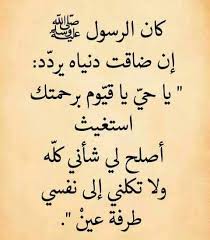 كان الرسول ﷺ
إن ضاقت دنياه يردّد:
" يا حيّ يا قيّوم برحمتك
استغيث
أصلح لي شأني كلّه
ولا تكلني إلى نفسي
طرفة عينْ ".